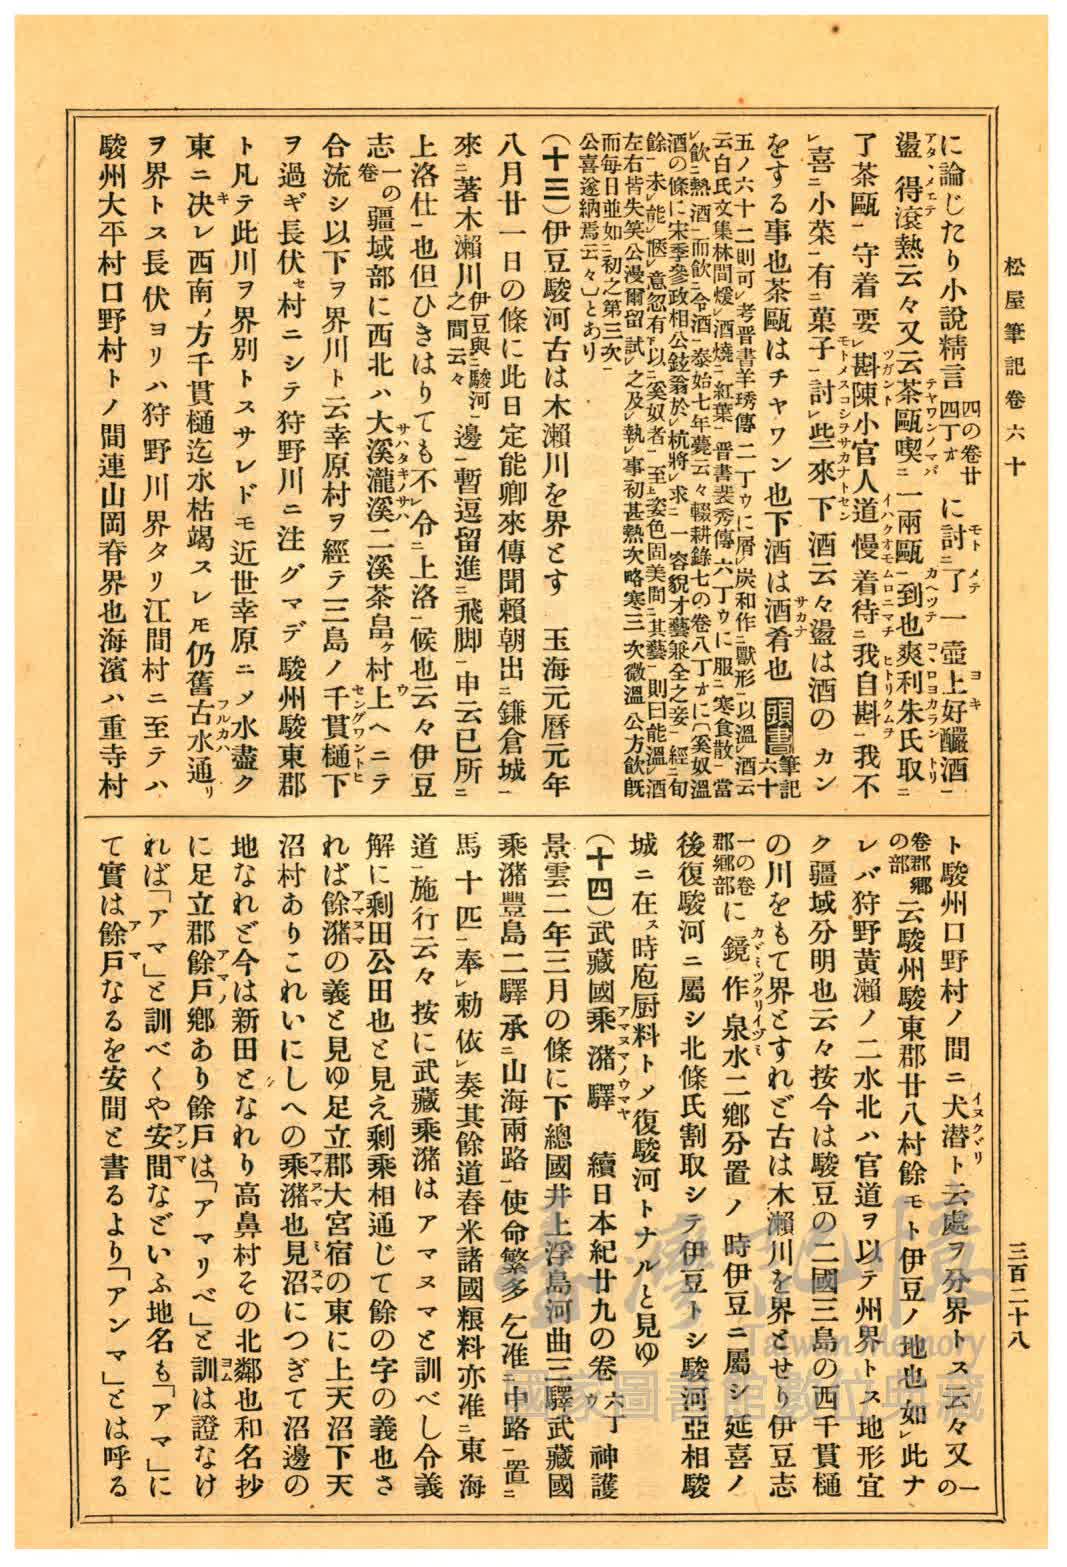 松屋筆記卷六十
三百二十八
に論じたり小說精言四の卷廿四丁オに討ニ了一壺上好釅酒一
盪得滾熱云々又云茶甌喫ニ一兩甌一到也爽利朱氏取ニ
了茶甌一守着要レ斟陳小官人道慢着待ニ我自斟一我不
レ喜ニ小菜一有ニ菓子一討レ些來下酒云々盪は酒のカン
をする事也茶甌はチヤワン也下酒は酒肴也頭書筆記六十
五ノ六十二則可レ考晋書羊琇傳二丁ウに屑レ炭和作ニ獸形一以溫レ酒云
云白氏文集林間煖レ酒燒ニ紅葉一晋書裴秀傳六丁ウに服ニ寒食散一當
レ飮ニ熱酒一而飮ニ令酒一泰始七年薨云々輟耕錄七の卷八丁オに〔奚奴溫
酒の條に宋季參政相公鉉翁於レ杭將レ求ニ一容貌才藝兼全之妾一經ニ旬
餘一未レ能レ愜レ意忽有下以ニ奚奴者一至上姿色固美問ニ其藝一則曰能溫レ酒
左右皆失笑公漫爾留試レ之及レ執レ事初甚熱次略寒三次微溫公方飮旣
而每日並如ニ初之第三次一
公喜遂納焉云々〕とあり
(十三)伊豆駿河古は木瀨川を界とす　玉海元曆元年
八月廿一日の條に此日定能卿來傳聞賴朝出ニ鎌倉城一
來ニ著木瀨川伊豆與ニ駿河一之間云々邊一暫逗留進ニ飛脚一申云已所ニ
上洛仕一也但ひきはりても不レ令ニ上洛一候也云々伊豆
志一の卷疆域部に西北ハ大溪瀧溪二溪茶畠ヶ村上ヘニテ
合流シ以下ヲ界川ト云幸原村ヲ經テ三島ノ千貫樋下
ヲ過ギ長伏セ村ニシテ狩野川ニ注グマデ駿州駿東郡
ト凡テ此川ヲ界別トスサレドモ近世幸原ニメ水盡ク
東ニ决レ西南ノ方千貫樋迄水枯竭スレモ仍舊古水通リ
ヲ界トス長伏ヨリハ狩野川界タリ江間村ニ至テハ
駿州大平村口野村トノ間連山岡脊界也海濱ハ重寺村
ト駿州口野村ノ間ニ犬潜ト云處ヲ分界トス云々又一の
卷郡鄉の部云駿州駿東郡廿八村餘モト伊豆ノ地也如レ此ナ
レバ狩野黃瀨ノ二水北ハ官道ヲ以テ州界トス地形宜
ク疆域分明也云々按今は駿豆の二國三島の西千貫樋
の川をもて界とすれど古は木瀨川を界とせり伊豆志
一の卷郡鄕部に鏡作泉水二鄉分置ノ時伊豆ニ屬シ延喜ノ
後復駿河ニ屬シ北條氏割取シテ伊豆トシ駿河亞相駿
城ニ在ス時庖厨料トメ復駿河トナルと見ゆ
(十四)武藏國乘瀦驛　續日本紀廿九の卷六丁ウ神護
景雲二年三月の條に下總國井上浮島河曲三驛武藏國
乘瀦豐島二驛承ニ山海兩路一使命繁多乞准ニ中路一置ニ
馬十匹一奉レ勅依レ奏其餘道舂米諸國粮料亦准ニ東海
道一施行云々按に武藏乘瀦はアマヌマと訓べし令義
解に剩田公田也と見え剩乘相通じて餘の字の義也さ
れば餘瀦の義と見ゆ足立郡大宮宿の東に上天沼下天
沼村ありこれいにしへの乘瀦也見沼につぎて沼邊の
地なれど今は新田となれり高鼻村その北鄰也和名抄
に足立郡餘戶鄕あり餘戶は「アマリベ」と訓は證なけ
れば「アマ」と訓べくや安間などいふ地名も「アマ」に
て實は餘戶なるを安間と書るより「アンマ」とは呼る
臺灣記憶
Taiwan Memory
國家圖書館數位典藏